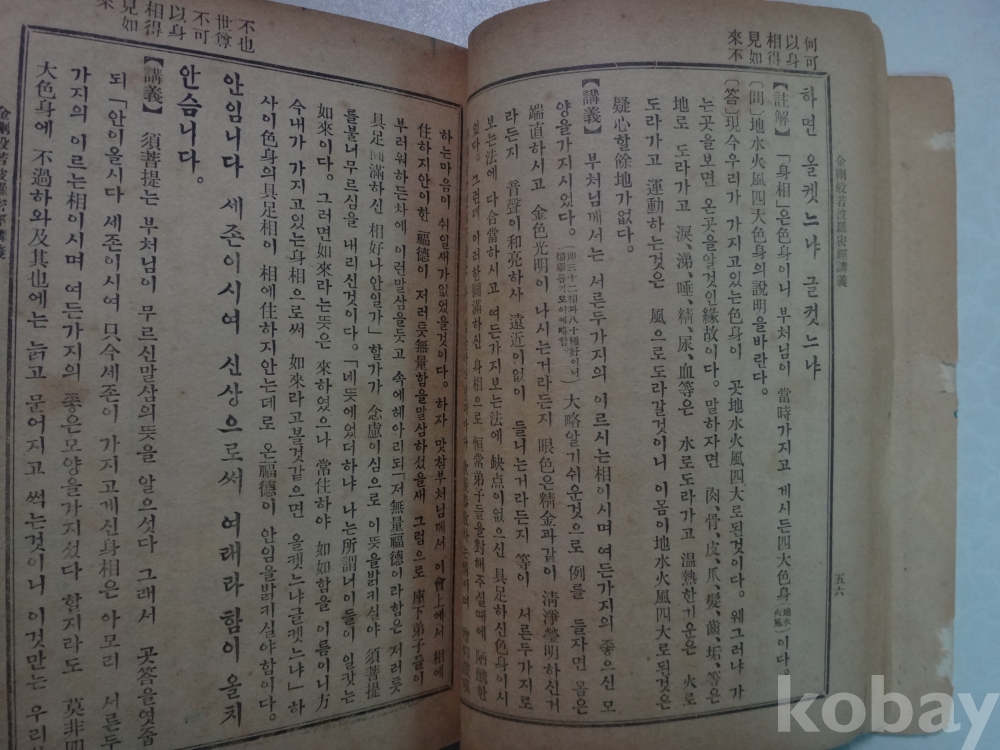 何可
以身
相得
見如
來不
金剛般若波羅密經講義
五六
하면 올켓느냐 글컷느냐
【註解】「身相」은色身이니 부처님이 當時가지고 게시든四大色身地水火風이다
〔問〕地水火風四大色身의說明을바란다。
〔答〕現今우리가 가지고있는色身이 곳地水火風四大로된것이다。웨그러냐 가
는곳을보면 온곳을알것인緣故이다。말하자면 肉、骨、皮、爪、髮、齒、垢、等은
地로 도라가고 淚、涕、唾、精、尿、血等은 水로도라가고 溫熱한기운은 火로
도라가고 運動하는것은 風으로도라갈것이니 이몸이地水火風四大로된것은
疑心할餘地가없다。
【講義】 부처님께서는 서른두가지의 이르시는相이시며 여든가지의 좋으신 모
양을가지시었다。(即三十二相과八十種好이니 大略알기쉬운것으로 例를 들자면 몸은
端直하시고 金色光明이 나시는거라든지 眼色은精金과같이 清淨瑩明하신거
라든지 音聲이和亮하사 遠近이없이 들니는거라든지 等이 서른두가지로
보는法에 다合當하시고 여든가지보는法에 缺点이없으신 具足하신色身이시
었다。그런데 이러하圓滿하신 身相으로 恒常弟子들을對해주실때에 陋醜한
하는마음이 쉬일새가없었을것이다。하자 맛참부처님께서 이會上에서 相에
住하지안이한 福德이 저러틋無量함을말삼하섰을새 그럼으로 座下弟子들이
부러워하든차에 이런말삼을듯고 속에헤아리되「저無量福德이라함은 저러틋
具足圓滿하신 相好나안일가」할가가 念慮이심으로 이뜻을밝키실야 須菩提
를불너무르심을 내리신것이다。「네뜻에었더하냐 나는所謂너이들이 일캇는
如來이다。그러면如來라는뜻은 來하였으나 常住하야 如如함을 이름이니方
今내가 가지고있는身相으로써 如來라고볼것같으면 올켓느냐글켓느냐」하
사이色身의具足相이 相에住하지안는데로 온福德이 안임을밝키실야함이다。
不也
世尊
不可
以身
相得
見如
來
안임니다 세존이시여 신상으로써 여래라 함이 올치
안슴니다。
【講義】 須菩提는 부처님이 무르신말삼의뜻을 알으섯다 그래서 곳答을엿줍
되「안이올시다 세존이시여 只今세존이 가지고게신身相은 아모리 서른두
가지의 이르는相이시며 여든가지의 좋은모양을가지섯다 할지라도 莫非四
大色身에 不過하와及其也에는 늙고 문어지고 썩는것이니 이것만는 우리
kobay